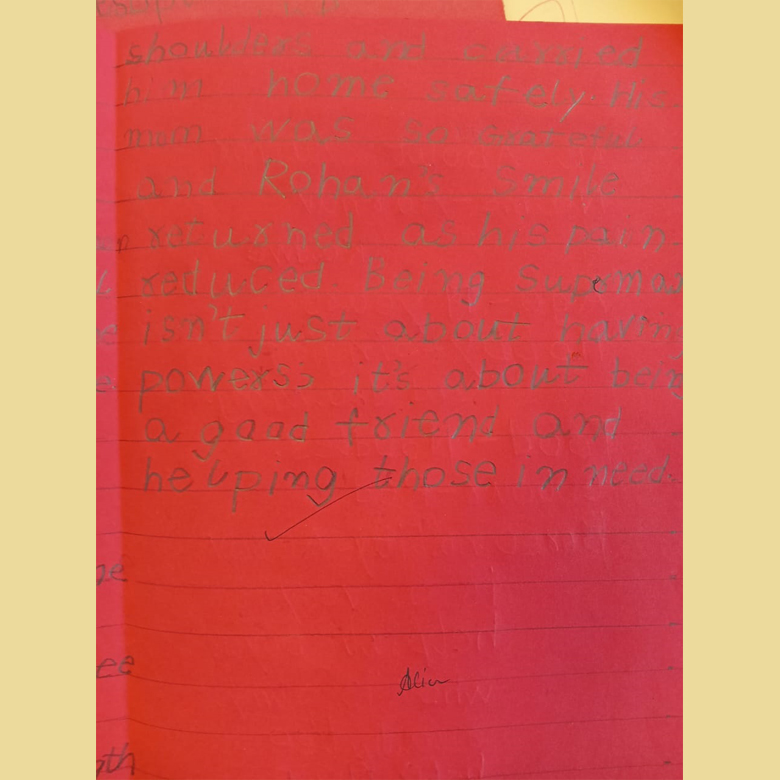 shoulders and carried
him home safely. His
mum was so Grateful
and Rohan's Smile
returned as his pain
reduced. Being Superman
isn't just about having
powers; it's about being
a good friend and
helping those in need.